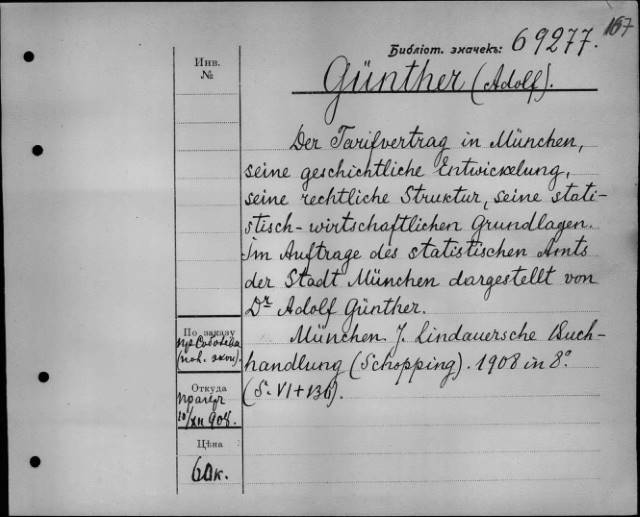 167
Библіот. значекъ: 69277.
Günther (Adolf).
Инв.
№
Der Tarifvertrag in München,
seine geschichtliche Entwickelung,
seine rechtliche Struktur, seine stati-
stisch-wirtschaftlichen Grundlagen.
Im Auftrage des statistischen Amts
der Stadt München dargestellt von
Dr Adolf Günther.
München. J. Lindauersche Buch-
handlung (Schöpping). 1908 in 8°
(S. VI+136).
По заказу
(пов. экон).
Откуда
10/XII 908.
Цѣна
60к.